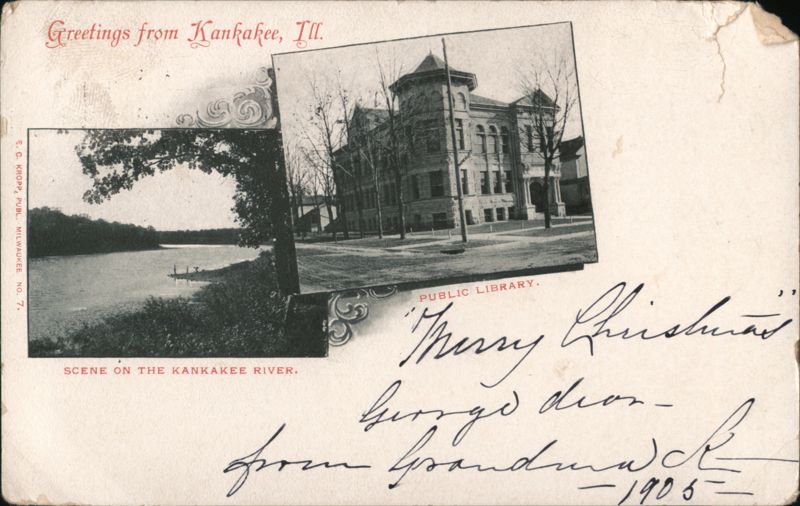 Greetings from Kankakee, Ill.
E. C. KROPP, PUBL. MILWAUKEE NO. 7.
PUBLIC LIBRARY.
SCENE ON THE KANKAKEE RIVER.
"Merry Christmas"
George dear –
from Grandma K –
– 1905 –